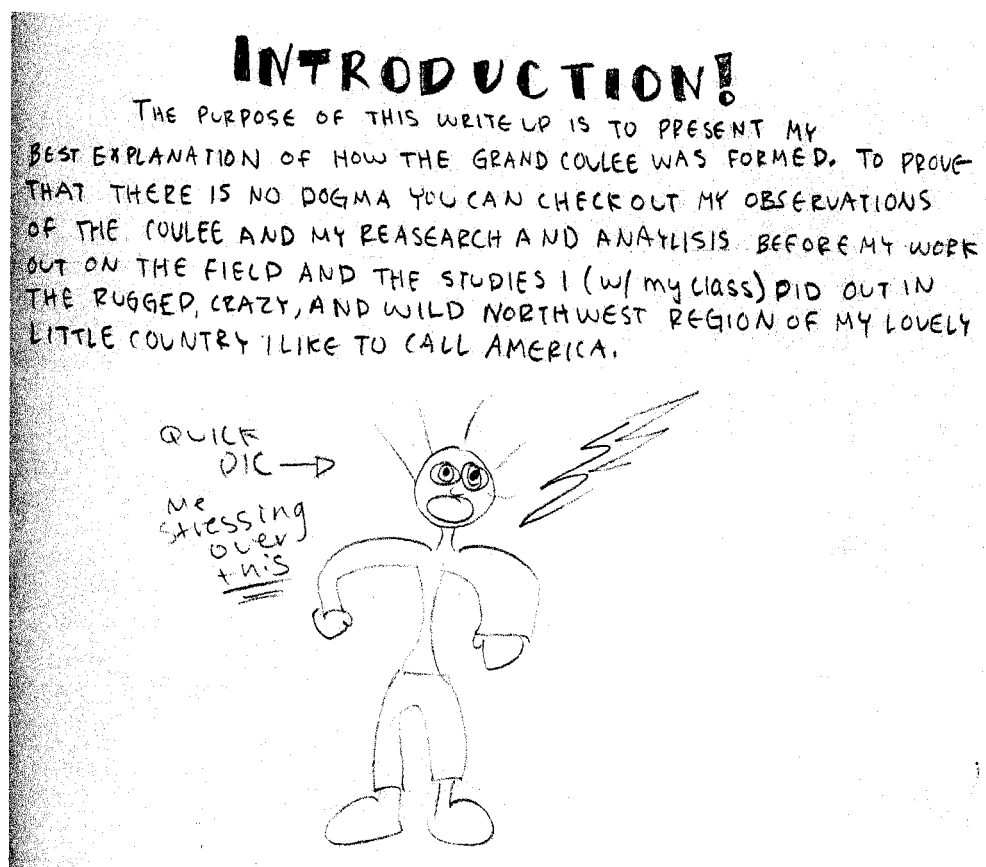 INTRODUCTION!
THE PURPOSE OF THIS WRITE UP IS TO PRESENT MY
BEST EXPLANATION OF HOW THE GRAND COULEE WAS FORMED. TO PROVE
THAT THERE IS NO DOGMA YOU CAN CHECK OUT MY OBSERVATIONS
OF THE COULEE AND MY REASEARCH AND ANAYLISIS BEFORE MY WORK
OUT ON THE FIELD AND THE STUDIES I (w/ my class) DID OUT IN
THE RUGGED, CRAZY, AND WILD NORTHWEST REGION OF MY LOVELY
LITTLE COUNTRY I LIKE TO CALL AMERICA.
QUICK
PIC
Me
stressing
over
this